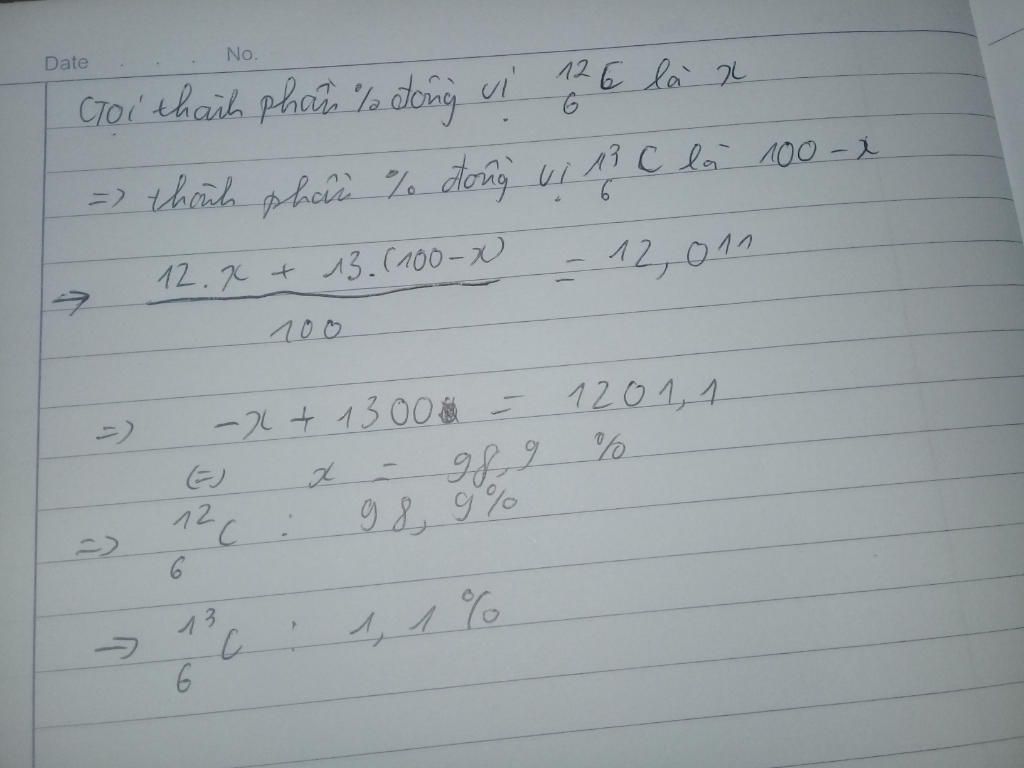 Date . . . No.
Gọi thành phần % đồng vị ¹²₆C là x
=> thành phần % đồng vị ¹³₆C là 100 - x
=> (12.x + 13.(100-x))/100 = 12,011
=> -x + 1300 = 1201,1
(=) x = 98,9 %
=> ¹²₆C : 98,9%
=> ¹³₆C : 1,1%